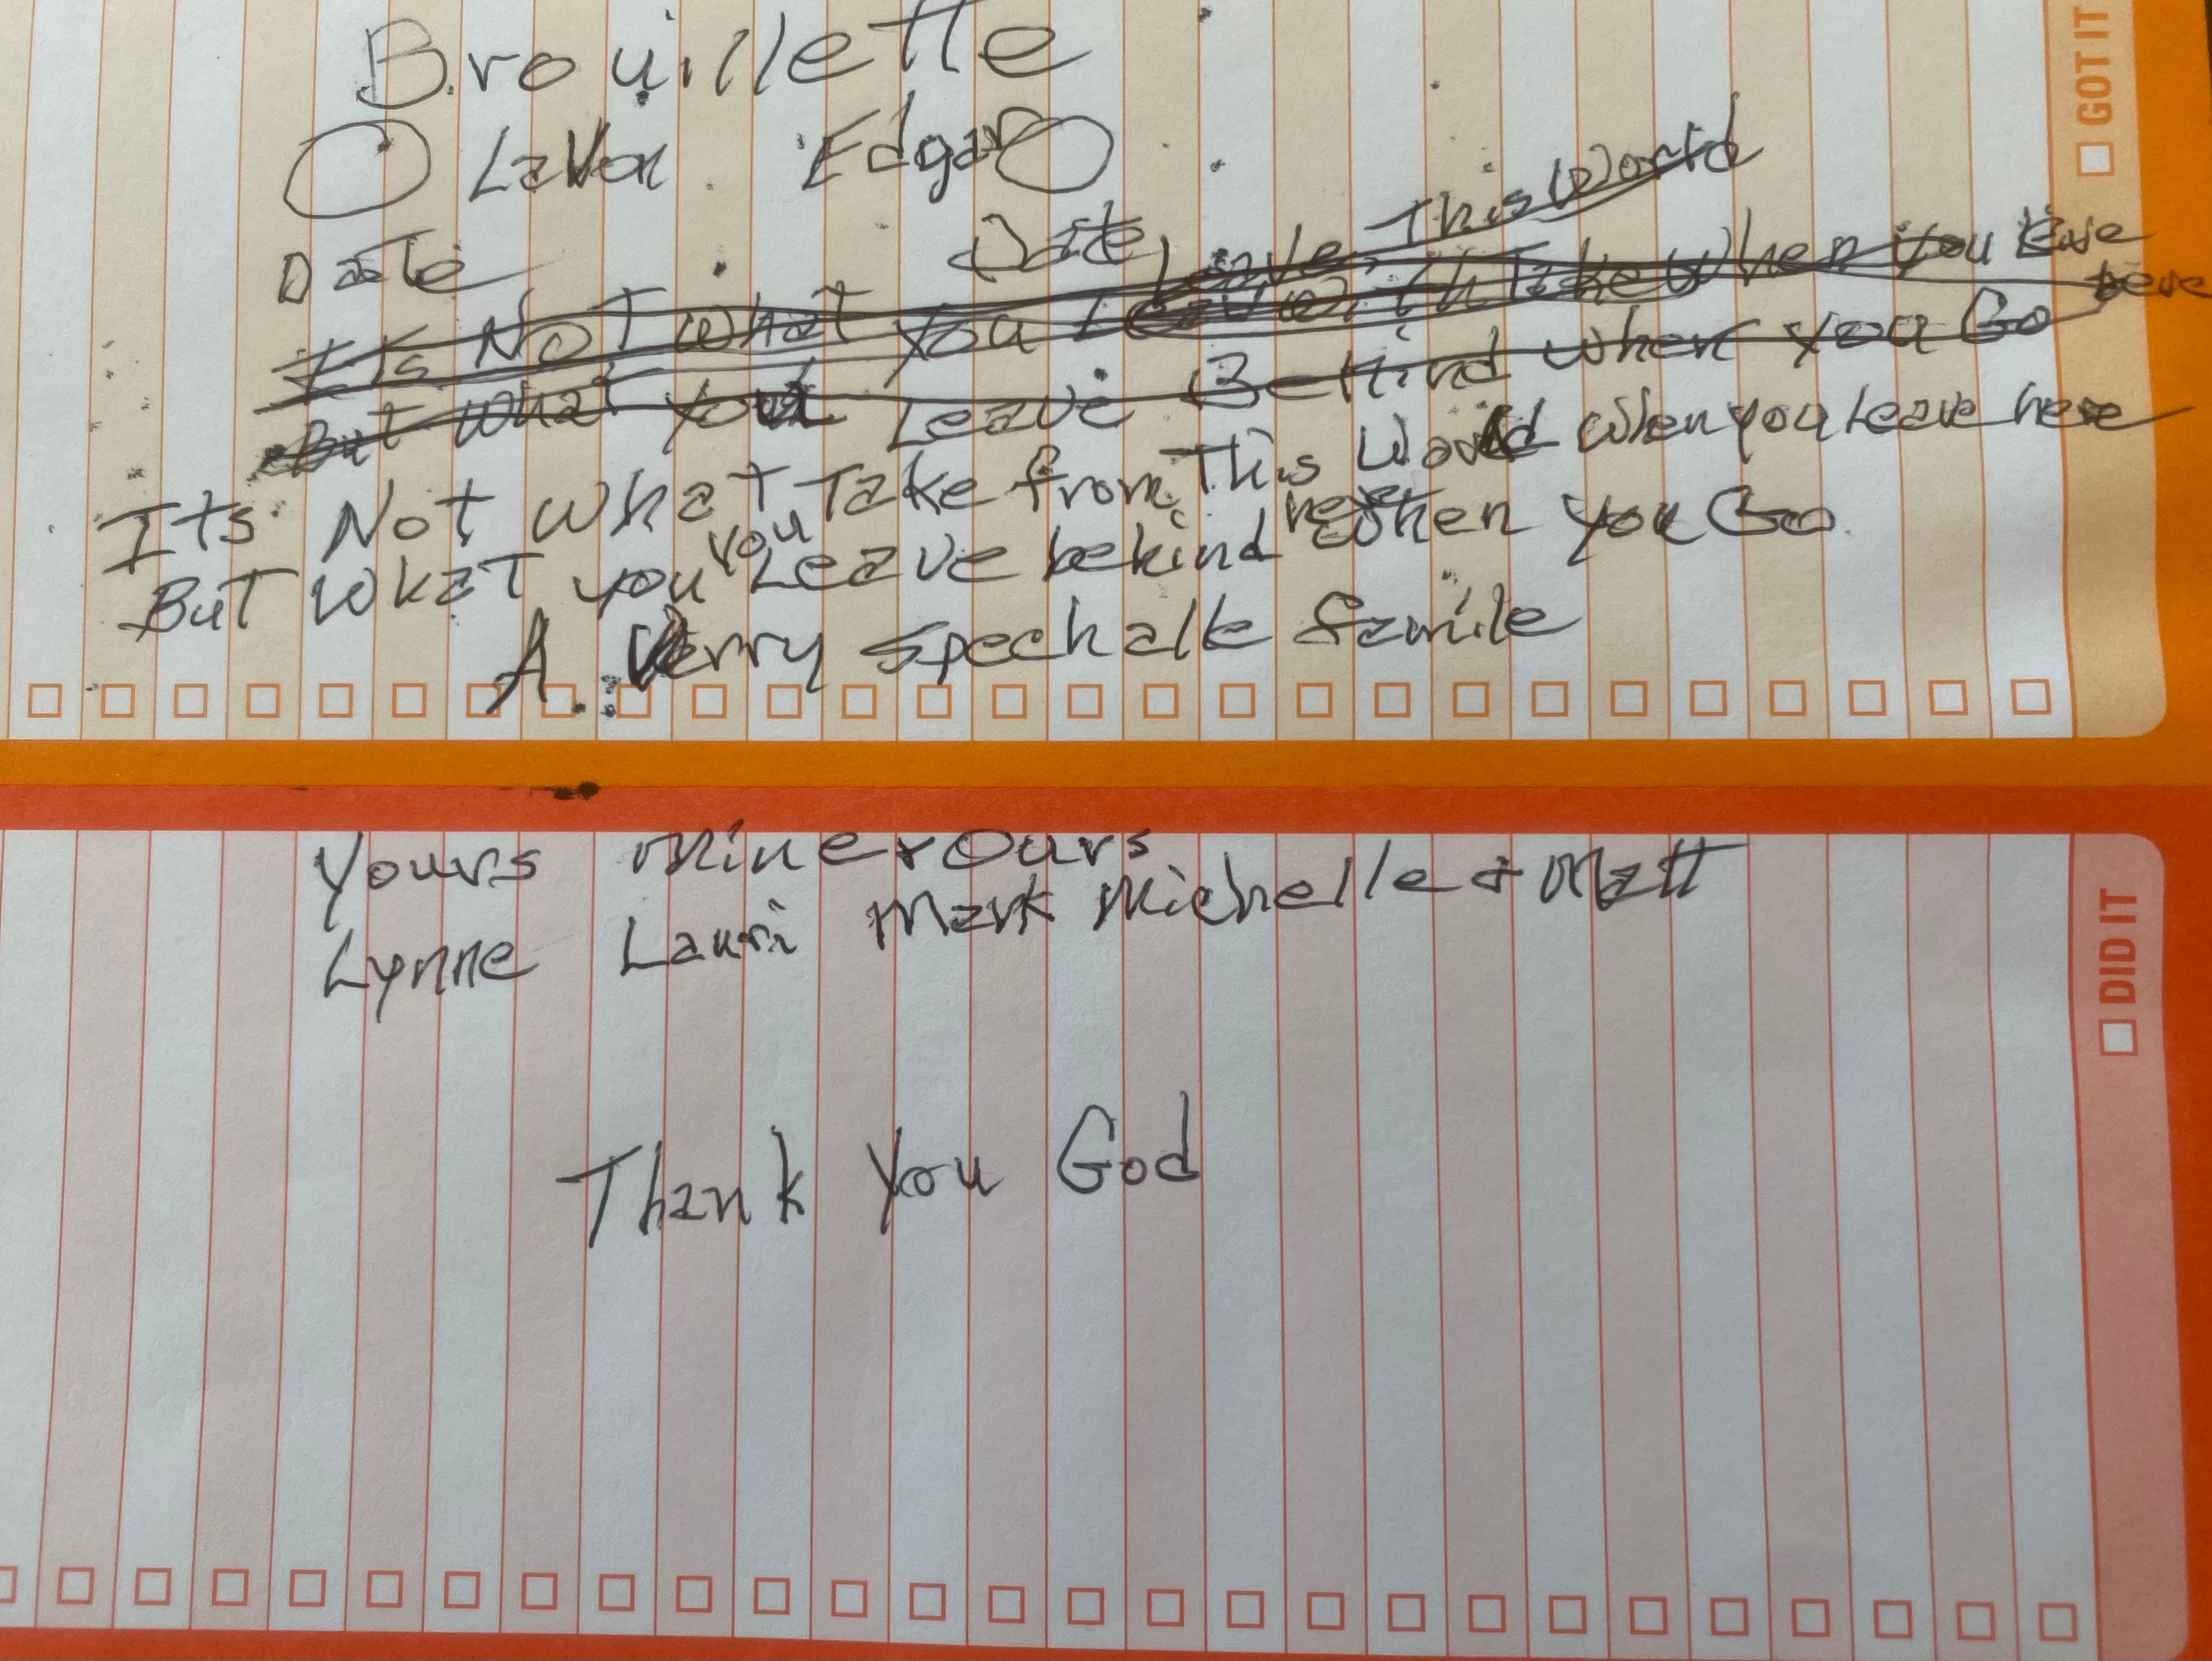 Brouillette
LaVon Edgar
Date Date
Leave This World
Its Not what you Take when you Leave here
But what you Leave Behind when you Go
Its Not what Take from This World when you Leave here
you here
But what you Leave behind when you Go
A Verry spechalle famile
GOT IT
Yours mine & Ours
Lynne Lauri Mark Michelle & Matt
Thank You God
DID IT